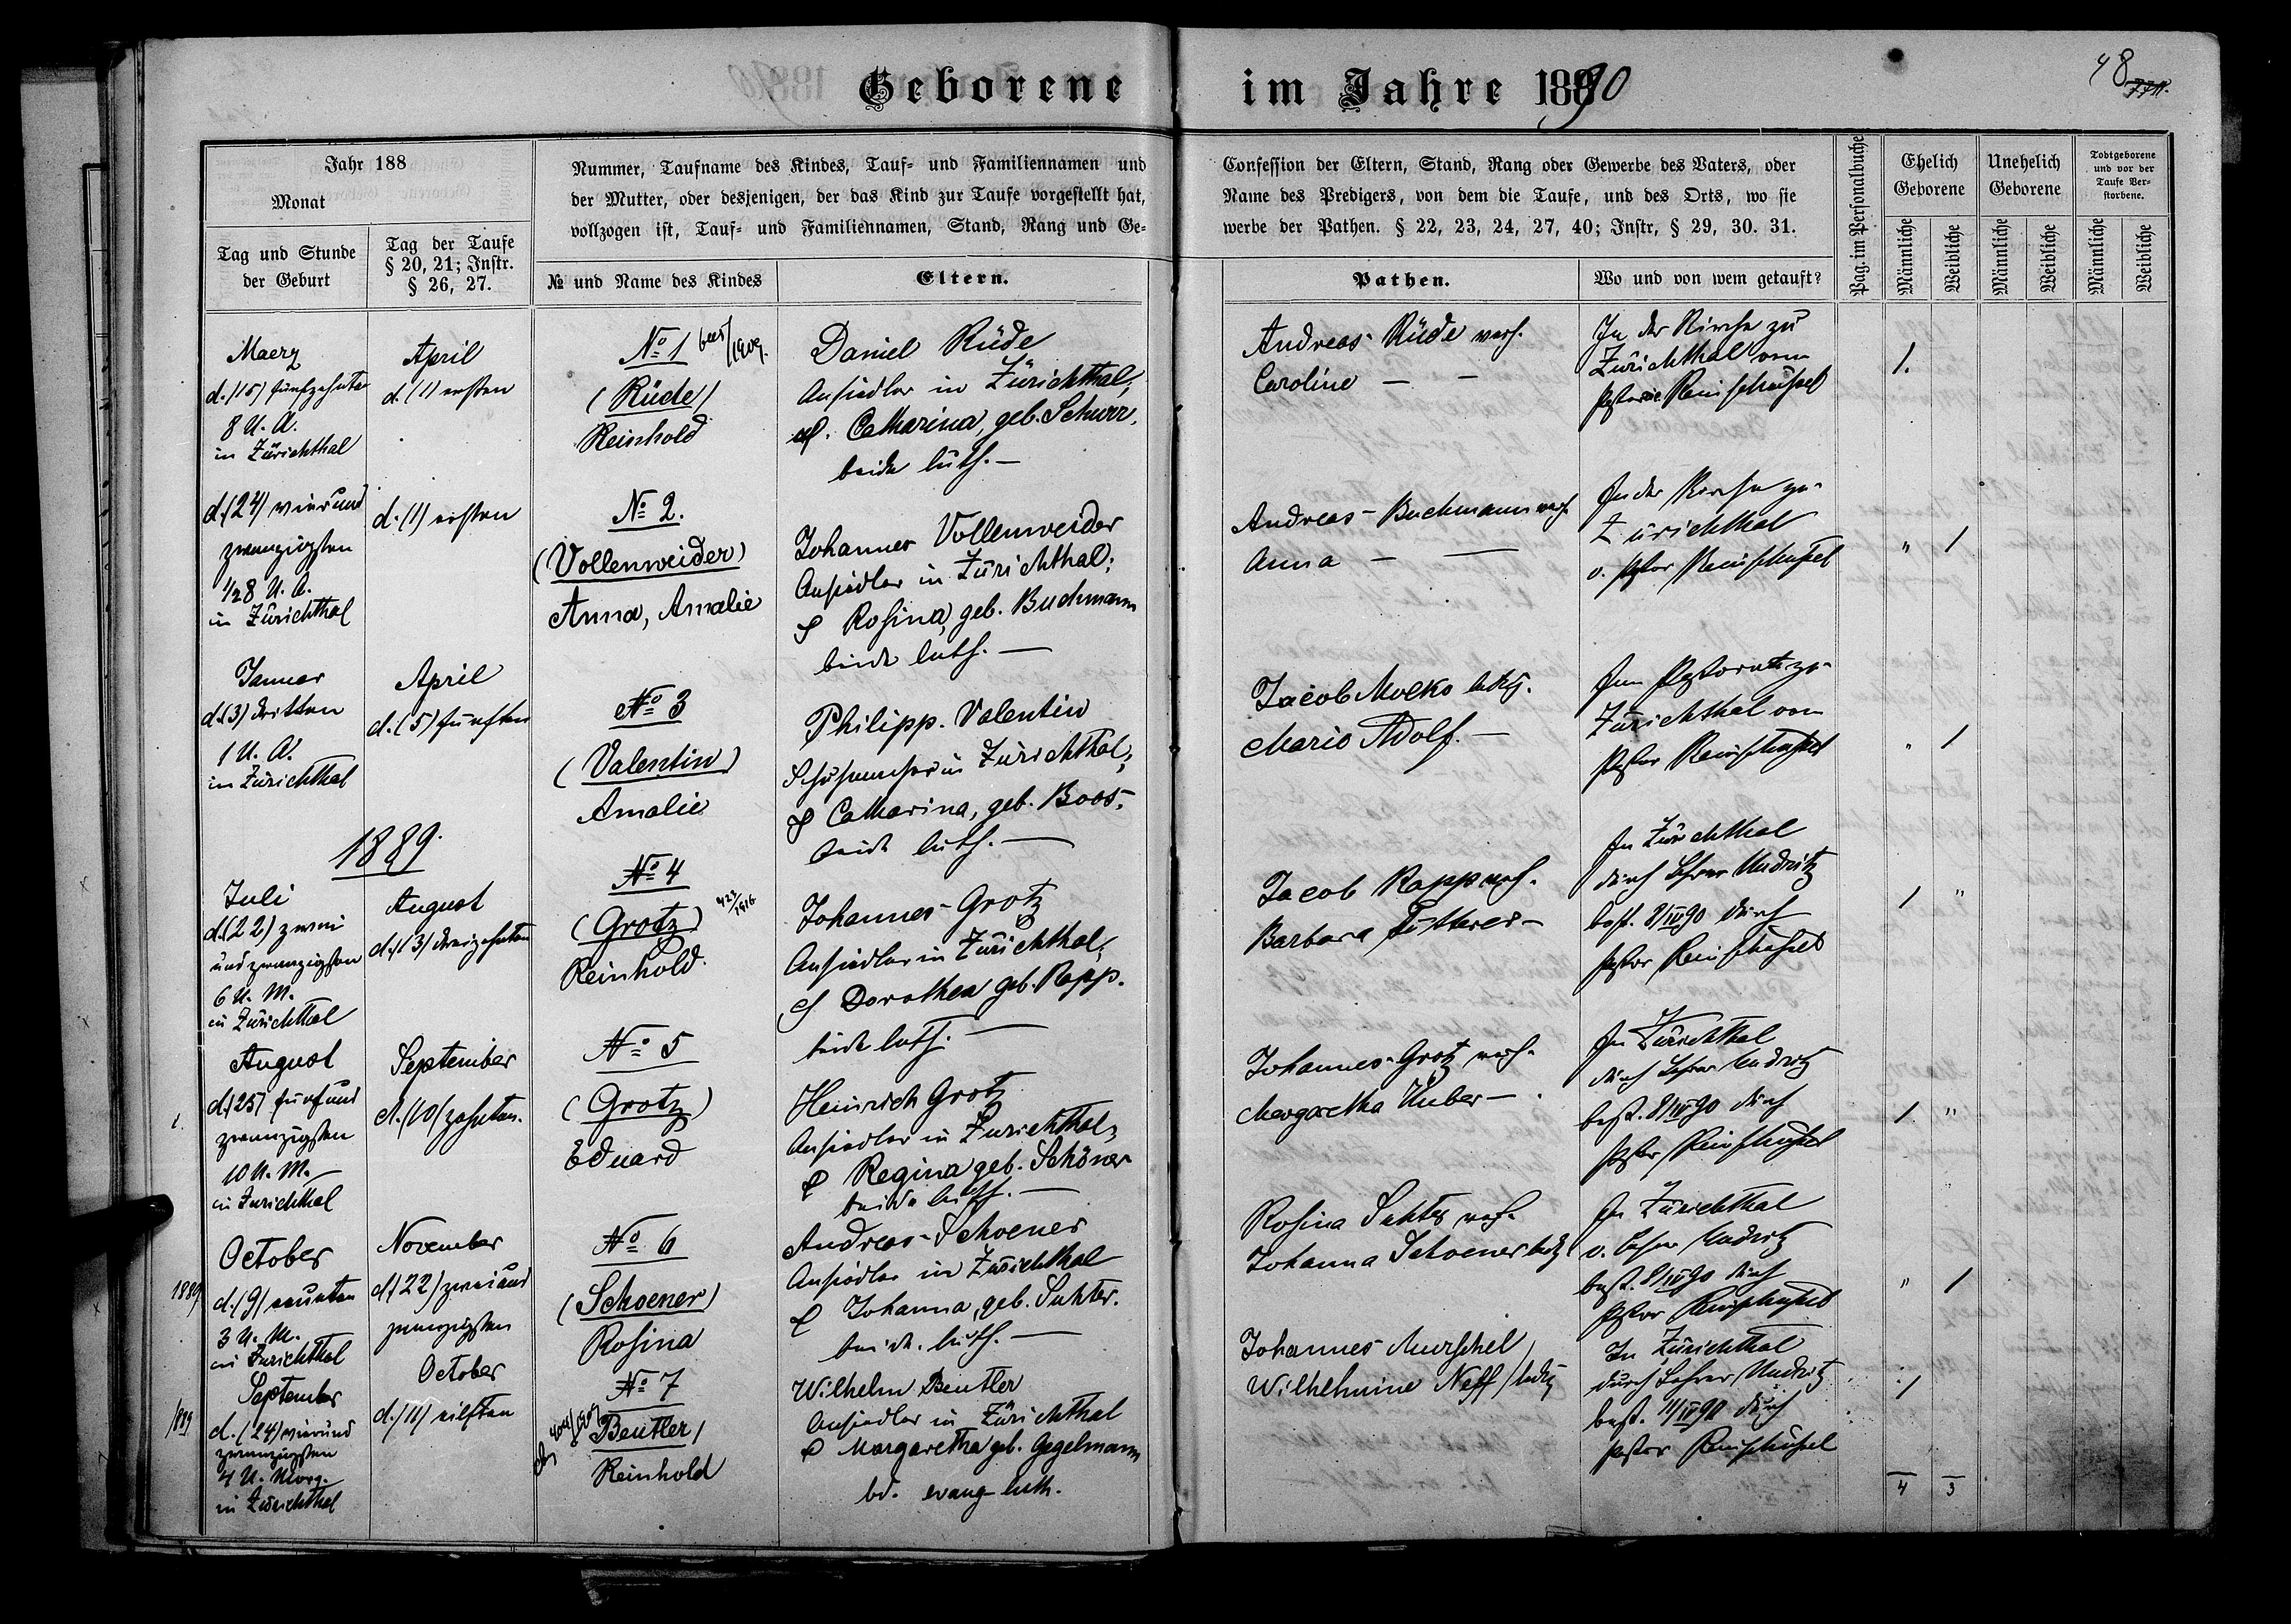 Geborene im Jahre 1890
48
Jahr 188
Monat
Tag und Stunde
der Geburt
Tag der Taufe
§ 20, 21; Instr.
§ 26, 27.
Nummer, Taufname des Kindes, Tauf- und Familiennamen und
der Mutter, oder desjenigen, der das Kind zur Taufe vorgestellt hat,
vollzogen ist, Tauf- und Familiennamen, Stand, Rang und Ge-
№ und Name des Kindes
Eltern.
Confession der Eltern, Stand, Rang oder Gewerbe des Vaters, oder
Name des Predigers, von dem die Taufe, und des Orts, wo sie
werbe der Pathen. § 22, 23, 24, 27, 40; Instr, § 29, 30. 31.
Pathen.
Wo und von wem getauft?
Pag. im Personalbuche
Ehelich
Geborene
Männliche
Weibliche
Unehelich
Geborene
Männliche
Weibliche
Todtgeborene
und vor der
Taufe Ver-
storbene.
Männliche
Weibliche
Maerz
d. (15) fünfzehnten
8 U. A.
in Zürichthal
April
d. (1) ersten
№ 1
(Rüde)
Reinhold
Daniel Rüde
Ansiedler in Zürichthal;
Catharina, geb. Schurr,
beide luth. —
Andreas Rüde verh.
Caroline — —
In der Kirche zu
Zürichthal vom
Pastor
1.
d. (24) vierund
zwanzigsten
1/2 8 U. A.
in Zürichthal
d. (1) ersten
№ 2.
(Vollenweider)
Anna, Amalie
Johannes Vollenweider
Ansiedler in Zürichthal;
& Rosina, geb. Buchmann
beide luth. —
Andreas Buchmann verh.
Anna — —
In der Kirche zu
Zürichthal
v. Pastor
" 1
Januar
d. (3) dritten
1 U. A.
in Zürichthal
April
d. (5) fünften
№ 3
(Valentin)
Amalie
Philipp Valentin
Schuhmacher in Zürichthal;
& Catharina, geb. Boos,
beide luth. —
Jacob ledig.
Maria Adolf. —
Im Pastorate zu
Zürichthal vom
Pastor
" 1
1889.
Juli
d. (22) zwei
und zwanzigsten
6 U. M.
in Zürichthal
August
d. (13) dreizehnten
№ 4
(Grotz)
Reinhold.
Johannes Grotz
Ansiedler in Zürichthal;
& Dorothea geb. Rapp.
beide luth. —
Jacob Rapp verh.
Barbara —
In Zürichthal
durch Lehrer Mudritz
best. 8/IV 90 durch
Pastor
1 "
August
d. (25) fünfund
zwanzigsten
10 U. M. —
in Zürichthal
September
d. (10) zehnten.
№ 5
(Grotz)
Eduard
Heinrich Grotz
Ansiedler in Zürichthal,
& Regina geb. Schöner
beide luth. —
Johannes Grotz verh.
Margaretha Huber —
In Zürichthal
durch Lehrer Mudritz
best. 8/IV 90 durch
Pastor
1. "
1889
October
d. (9) neunten
3 U. M.
in Zürichthal
November
d. (22) zweiund
zwanzigsten
№ 6
(Schoener)
Rosina
Andreas Schoener
Ansiedler in Zürichthal
& Johanna, geb. Suhter.
beide luth. —
Rosina Suhter verh.
Johanna Schoener ledig
In Zürichthal
v. Lehrer Mudritz
best. 8/IV 90 durch
Pastor
" 1
1889
September
d. (24) vierund
zwanzigsten
4 U. Morg.
in Zürichthal
October
d. (11) eilften
№ 7
Beutler
Reinhold
Wilhelm Beutler
Ansiedler in Zürichthal
& Margaretha geb. Gegelmann
bd. evang luth.
Johannes Murschel
Wilhelmine Neff / ledig
In Zürichthal
durch Lehrer Mudritz
best. 11/IV 90 durch
Pastor
1
4 3